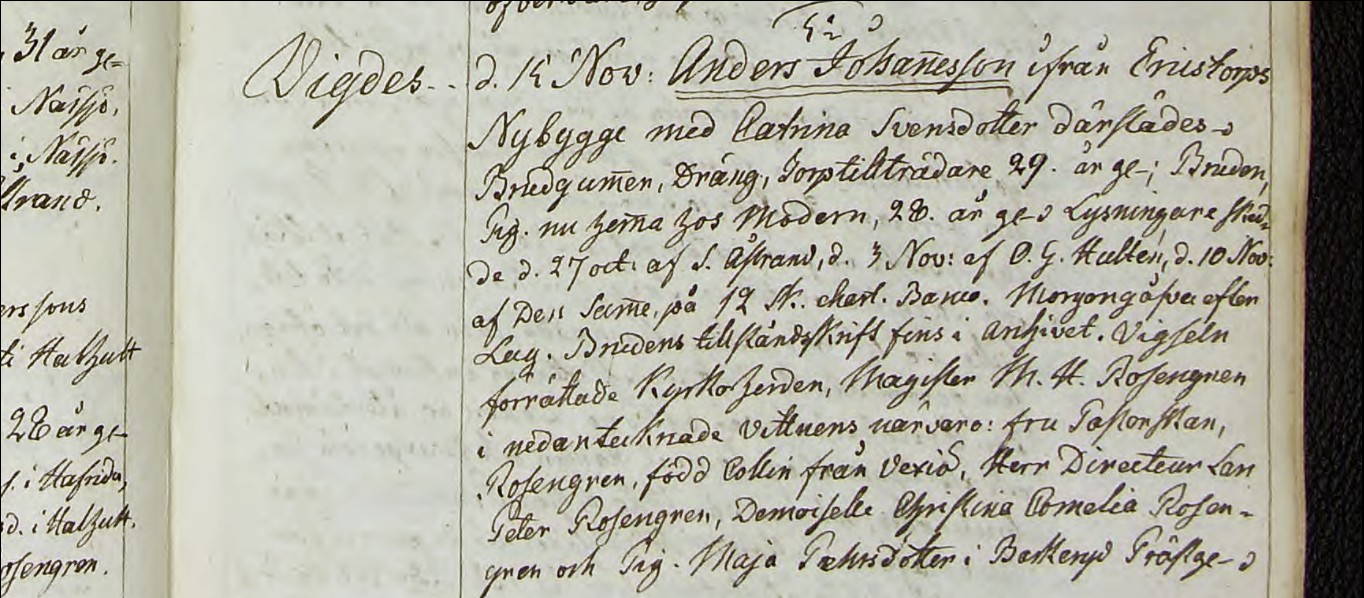 31 år ge=
Nässjö.
i Nässjö.
strand.
erssons
ti Hultzult
28 år ge-
s. i Hafrida,
sd. i Hultzult.
osengren.
Vigdes - -
d. 15 Nov: Anders Johan̄esson ifrån Ericstorps
Nybygge med Catrina Svensdotter därstädes -
Brudgum̄en, Dräng, Torptillträdare 29. år ge-; Bruden,
Pig. nu hem̄a hos Modern, 28. år ge- Lysningare sked=
de d. 27 oct: af S. Åstrand, d. 3 Nov: af O. G. Hultén, d. 10 Nov:
af Den Sam̄e, på 12 sk. chart. Banco. Morgongåfva efter
Lag. Brudens tillståndsskrift fins i archivet. Vigseln
förrättade Kyrkoherden, Magister M. H. Rosengren
i nedantecknade vittnens närvaro: fru Pastorskan,
Rosengren, född Collin från Vexiö, Herr Directeur Lars
Peter Rosengren, Demoiselle Christina Cornelia Rosen-
gren och Pig. Maja Pehrsdotter i Barkeryd Prästge-